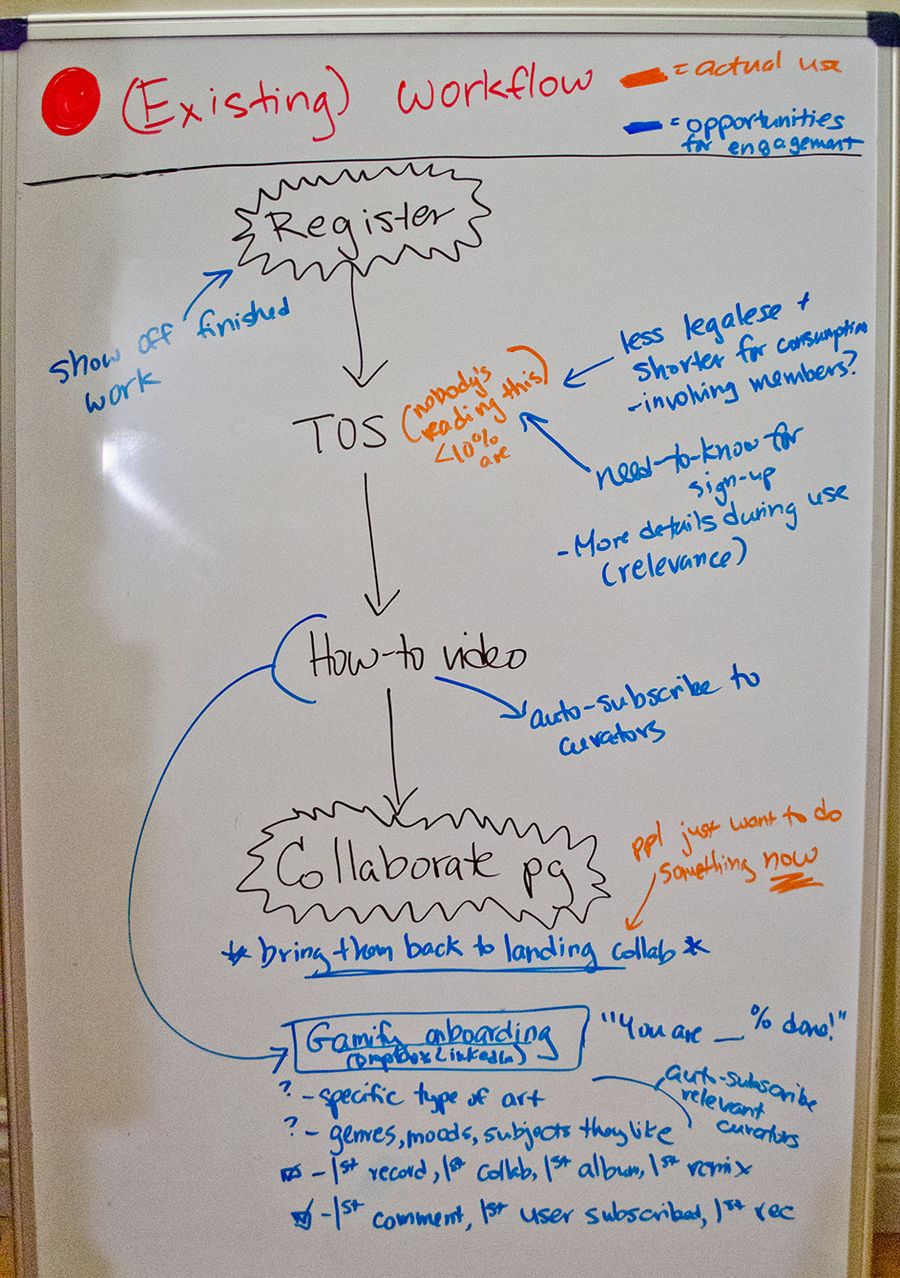 (Existing) Workflow
= actual use
= opportunities
for engagement
Register
show off finished
work
less legalese +
shorter for consumption
- involving members?
TOS
(nobody's
reading this)
<10%
are
need-to-know for
sign-up
- More details during use
(relevance)
How-to video
auto-subscribe to
curators
Collaborate pg
ppl just want to do
something now
* bring them back to landing collab *
Gamify onboarding
(Dropbox LinkedIn)
"You are __% done!"
? - specific type of art
auto-subscribe
relevant
curators
? - genres, moods, subjects they like
- 1st record, 1st collab, 1st album, 1st remix
- 1st comment, 1st user subscribed, 1st rec